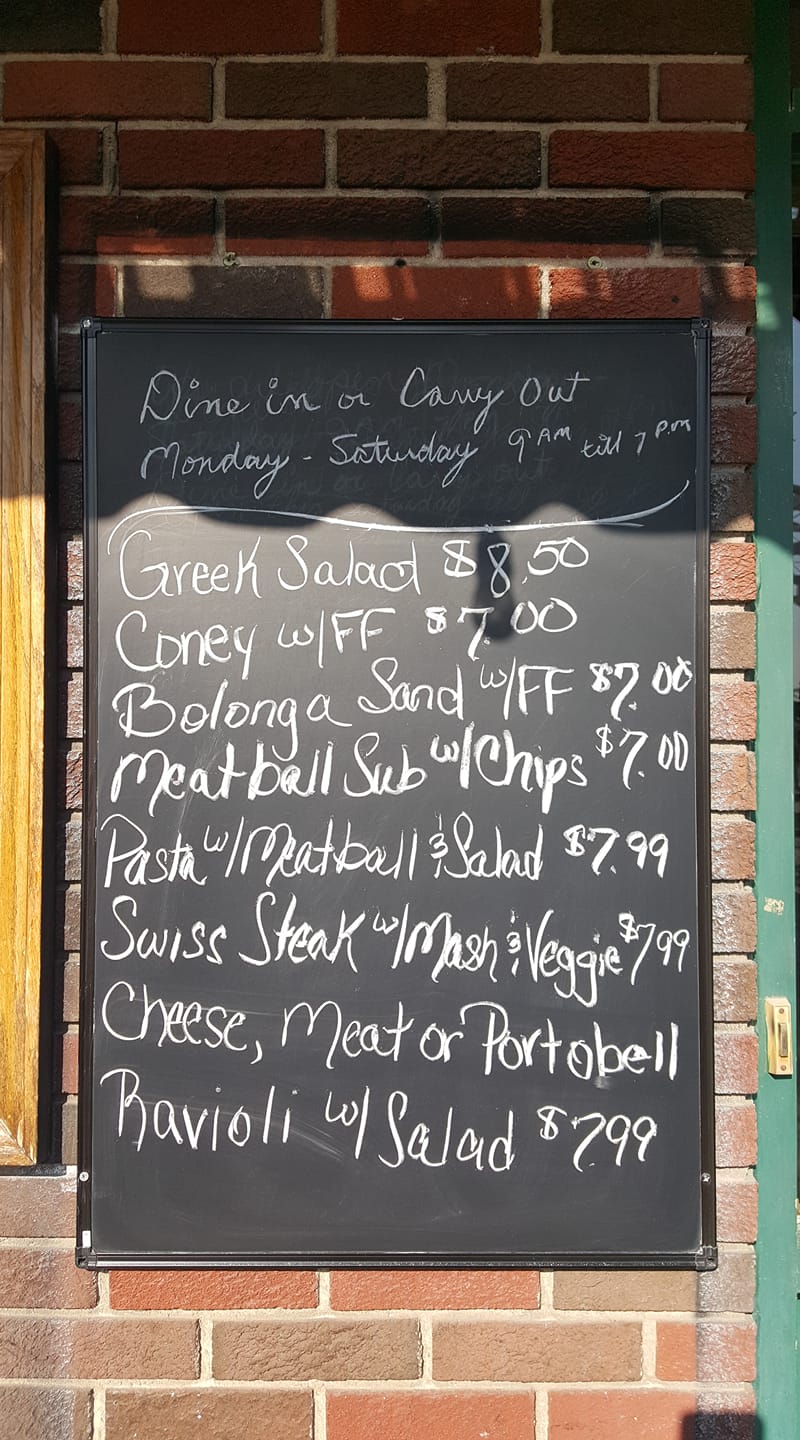 Dine in or Carry Out
Monday - Saturday 9 AM till 7 P.m
Greek Salad $8.50
Coney w/FF $7.00
Bolonga Sand w/FF $7.00
Meatball Sub w/Chips $7.00
Pasta w/Meatball & Salad $7.99
Swiss Steak w/Mash & Veggie $799
Cheese, Meat or Portobell
Ravioli w/ Salad $7.99